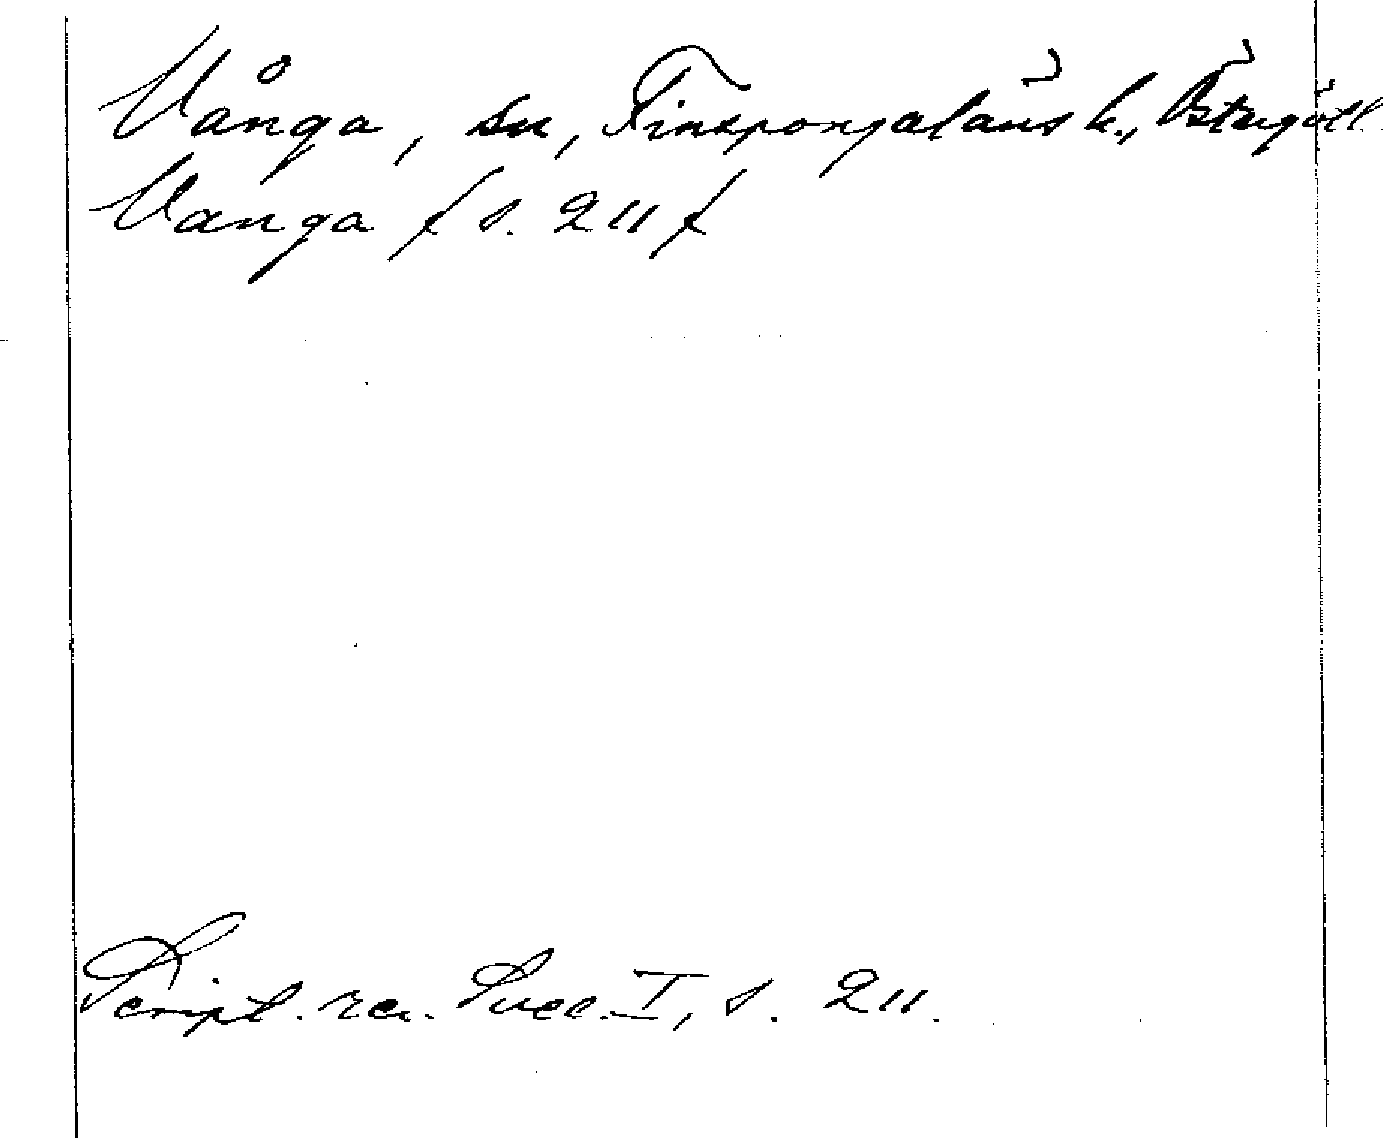 Vånga, sn, Finspongaläns h., Östergötl.
Vanga / s. 211 /
Script. rer. Suec. I, s. 211.